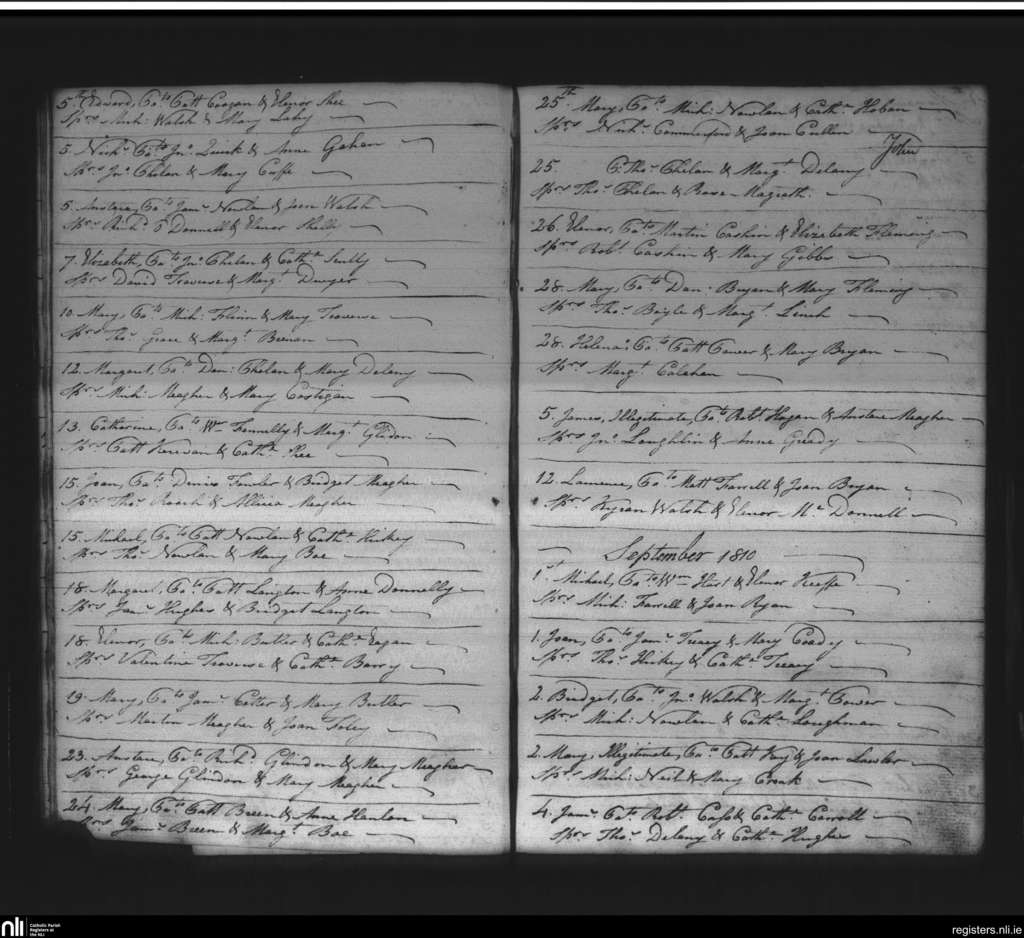 5th Edward, Co. to Patt Coogan & Elenor Shee
Sprs Mich: Walsh & Mary Lahy
5. Nichs Co. to Jno. Quirk & Anne Gahan
Sprs Jno. Phelan & Mary Cuffe
5. Anstace, Co. to Jams Nowlan & Joan Walsh
Sprs Richd O Donnell & Elenor Shelly
7. Elizabeth, Co. to Jno. Phelan & Cathe Scully
Sprs David Traverse & Margt Dwyer
10. Mary, Co. to Mich: Flinn & Mary Traverse
Sprs Thos Grace & Margt Brenan
12. Margaret, Co. to Den: Phelan & Mary Delany
Sprs Mich: Meagher & Mary Costigan
13. Catherine, Co. to Wm Fennelly & Margt Glindon
Sprs Patt Kerwan & Cathe Shee
15. Joan, Co. to Dennis Fowler & Bridget Meagher
Sprs Thos Roach & Meagher
15. Michael, Co. to Patt Nowlan & Cathe Hickey
Sprs Thos Nowlan & Mary Bae
18. Margaret, Co. to Patt Langton & Anne Donnelly
Sprs Jams Hughes & Bridget Langton
18. Elenor, Co. to Mich: Butler & Cathe Eagan
Sprs Valentine Traverse & Cathe Barry
19. Mary, Co. to Jams Cotter & Mary Butler
Sprs Martin Meagher & Joan Foley
23. Anstace, Co. to Richd Glindon & Mary Meagher
Sprs George Glindon & Mary Meagher
24. Mary, Co. to Patt Breen & Anne Hanlon
Sprs Jams Breen & Margt Bae
25th Mary, Co. to Mich: Nowlan & Cathe Hoban
Sprs Nichs Commerford & Joan Cullen
John
25. C. Thos Phelan & Margt Delany
Sprs Thos Phelan & Rose Magrath.
26. Elenor, Co. to Martin Cashin & Elizabeth Fleming
Sprs Robt Cashin & Mary Gibbs
28. Mary, Co. to Dan. Bryan & Mary Fleming
Sprs Thos Boyle & Margt Linch
28. Helena, Co. to Patt Power & Mary Bryan
Sprs Margt Calahan
5. James, Illegitimate, Co. to Robt Hogan & Anstace Meagher
Sprs Jno Loughlin & Anne Gready
12. Laurence, Co. to Matt Farrell & Joan Bryan
Sprs Kyran Walsh & Elenor Mc Donnell
September 1810
1st Michael, Co. to Wm Hart & Elenor Keeffe
Sprs Mich: Farrell & Joan Ryan
1. Joan, Co. to Jams Treacy & Mary Coady
Sprs Thos Hickey & Cathe Treacy
2. Bridget, Co. to Jno Walsh & Margt Power
Sprs Mich: Nowlan & Cathe Loughman
2. Mary, Illegitimate, Co. to Patt Foy & Joan Lawler
Sprs Mich: Neil & Mary Croak
4. Jams Co. to Robt Cass & Cathe Carroll
Sprs Thos Delany & Cathe Hughes
nli
Catholic Parish
Registers at
the NLI
registers.nli.ie